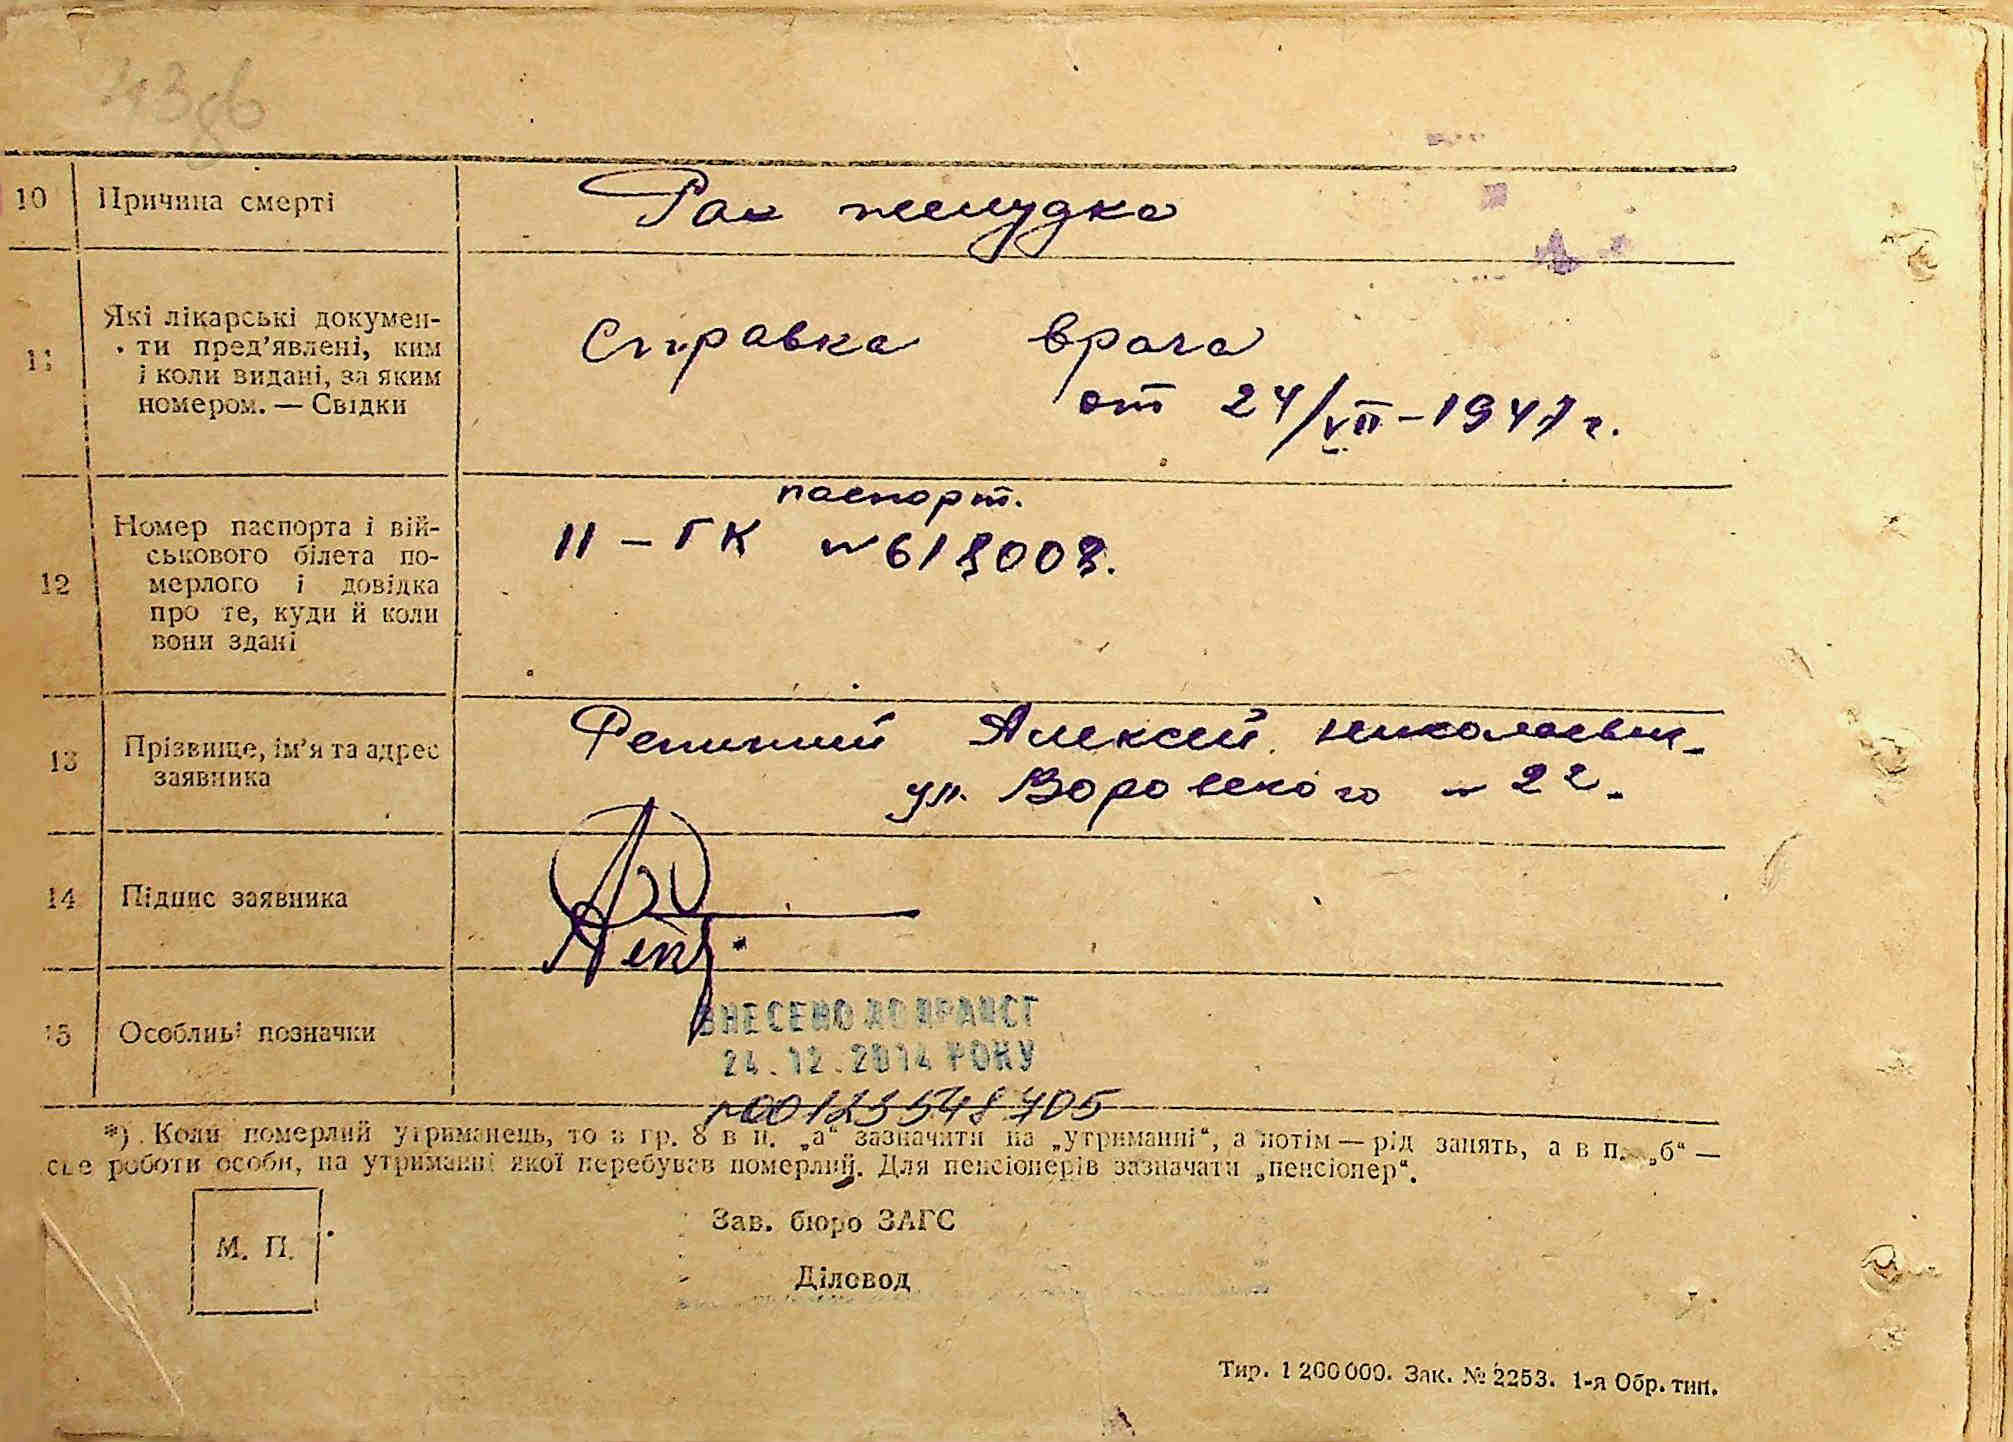 10 Причина смерті Рак желудка
11 Які лікарські докумен-
ти пред’явлені, ким
і коли видані, за яким
номером. — Свідки
Справка врача
от 24/VII-1947 г.
12 Номер паспорта і вій-
ськового білета по-
мерлого і довідка
про те, куди й коли
вони здані
паспорт.
II – ГК № 618008.
13 Прізвище, ім’я та адрес
заявника
Алексей Николаевич
ул. Воровского № 22.
14 Підпис заявника
15 Особливі позначки
ВНЕСЕНО ДО ДРАЦСГ
24.12.2014 РОКУ
№00123548705
*) Коли померлий утриманець, то в гр. 8 в п. „а“ зазначити на „утриманні“, а потім — рід занять, а в п. „б“ —
роботи особи, на утриманні якої перебував померлий. Для пенсіонерів зазначати „пенсіонер“.
М. П.
Зав. бюро ЗАГС
Діловод
Тир. 1 200 000. Зак. № 2253. 1-я Обр. тип.